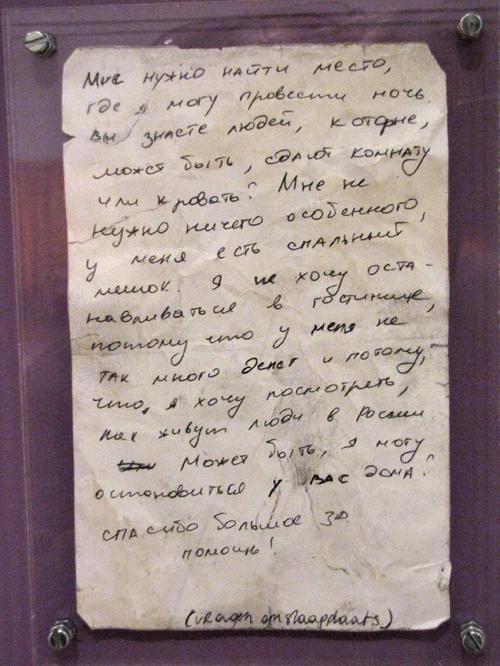 Мне нужно найти место,
где я могу провести ночь.
Вы знаете людей, которые,
может быть, сдают комнату
или кровать? Мне не
нужно ничего особенного,
у меня есть спальный
мешок. Я не хочу оста-
навливаться в гостинице,
потому что у меня не
так много денег и потому,
что, я хочу посмотреть,
как живут люди в России.
Может быть, я могу
остановиться у вас дома?
спасибо большое за
помощь!
(vragen om slaapplaats)